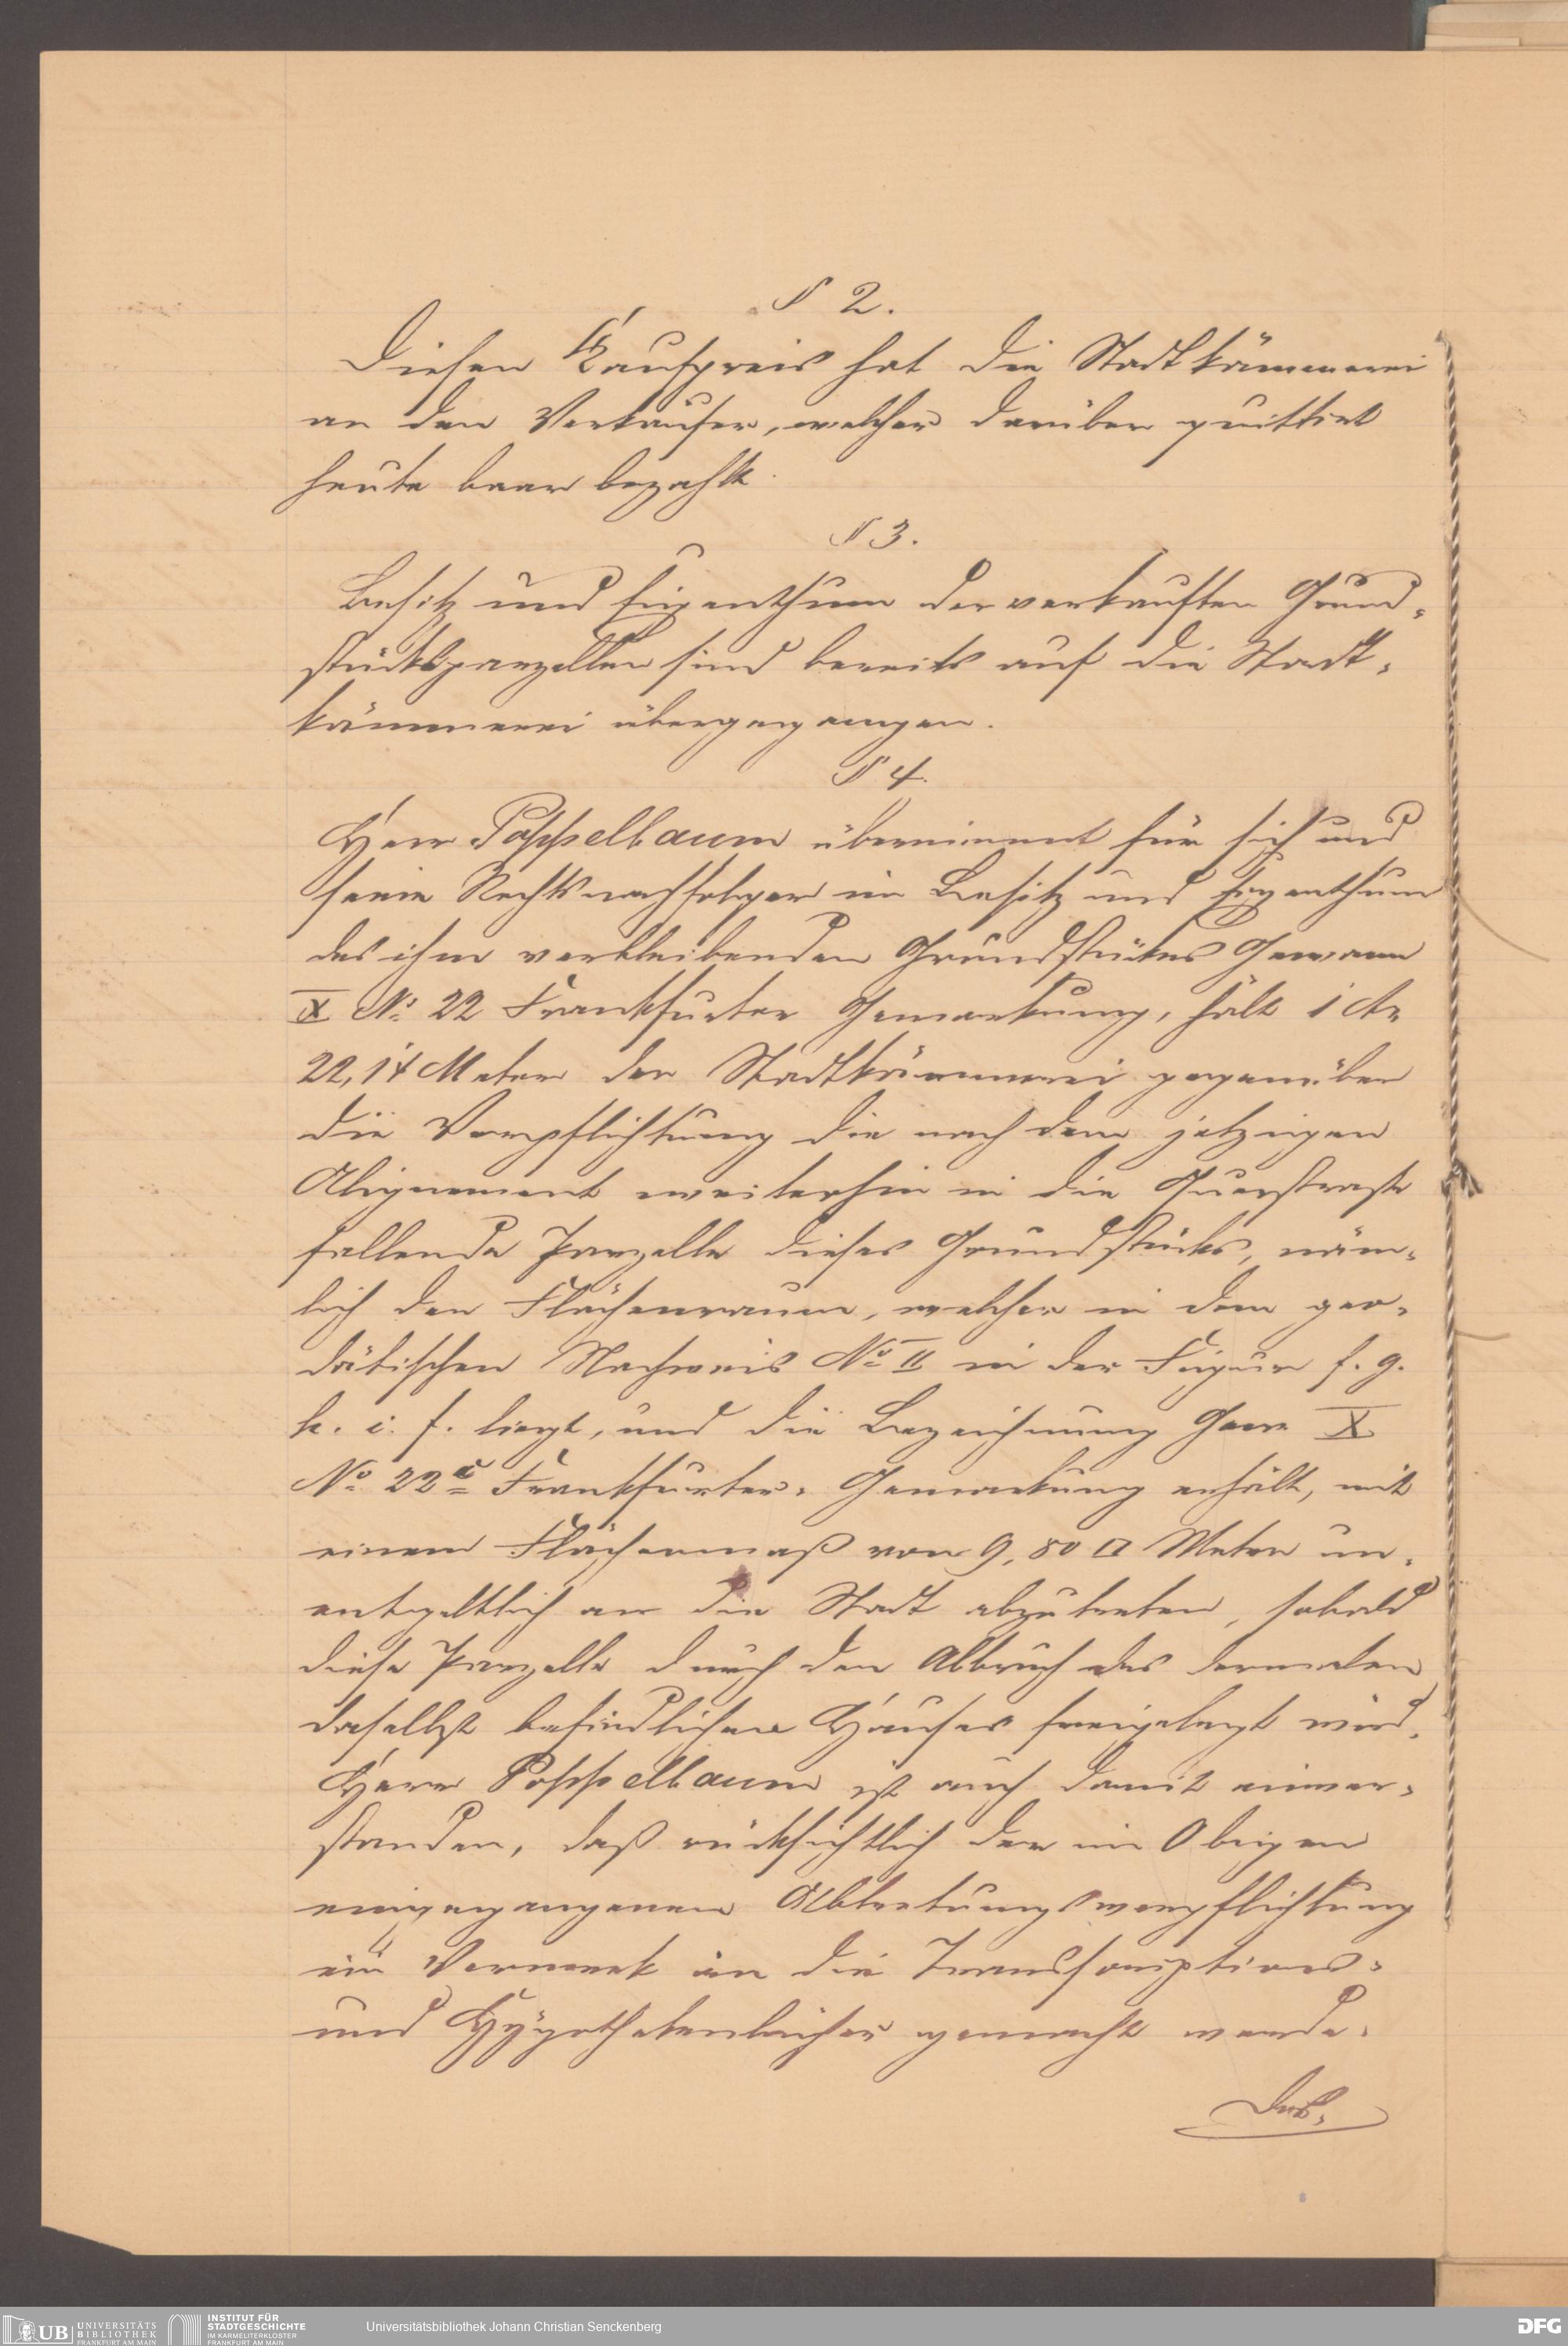 § 2.
Diesen Kaufpreis hat die Stadtkämmerei
an den Verkäufer, welcher darüber quittirt
heute baar bezahlt.
§ 3.
Besitz und Eigenthum der verkauften Grund-
stücksparzellen sind bereits auf die Stadt-
kämmerei übergegangen.
§ 4.
Herr Poppelbaum übernimmt für sich und
seine Rechtsnachfolger im Besitz und Eigenthum
des ihm verbleibenden Grundstückes Gewann
X No. 22 Frankfurter Gemarkung, hält 1 Ar
22,14 Meter der Stadtkämmerei gegenüber
die Verpflichtung die nach dem jetzigen
Alignement weiterhin in die Querstraße
fallende Parzelle dieses Grundstücks, näm-
lich den Flächenraum, welcher in dem geo-
dätischen Nachweis No. II in der Figur f. g.
h. i. f. liegt, und die Bezeichnung Gew. X
No. 22c Frankfurter-Gemarkung erhält, mit
einem Flächenmaß von 9,80 □ Meter un-
entgeltlich an die Stadt abzutreten, sobald
diese Parzelle durch den Abbruch des dermalen
daselbst befindlichen Hauses freigelegt wird.
Herr Poppelbaum ist auch damit einver-
standen, daß rücksichtlich der im Obigen
eingegangenen Abtretungsverpflichtung
ein Vermerk in die Transscriptions-
und Hypothekenbücher gemacht werde.
UB UNIVERSITÄTS
BIBLIOTHEK
FRANKFURT AM MAIN
INSTITUT FÜR
STADTGESCHICHTE
IM KARMELITERKLOSTER
FRANKFURT AM MAIN
Universitätsbibliothek Johann Christian Senckenberg
DFG